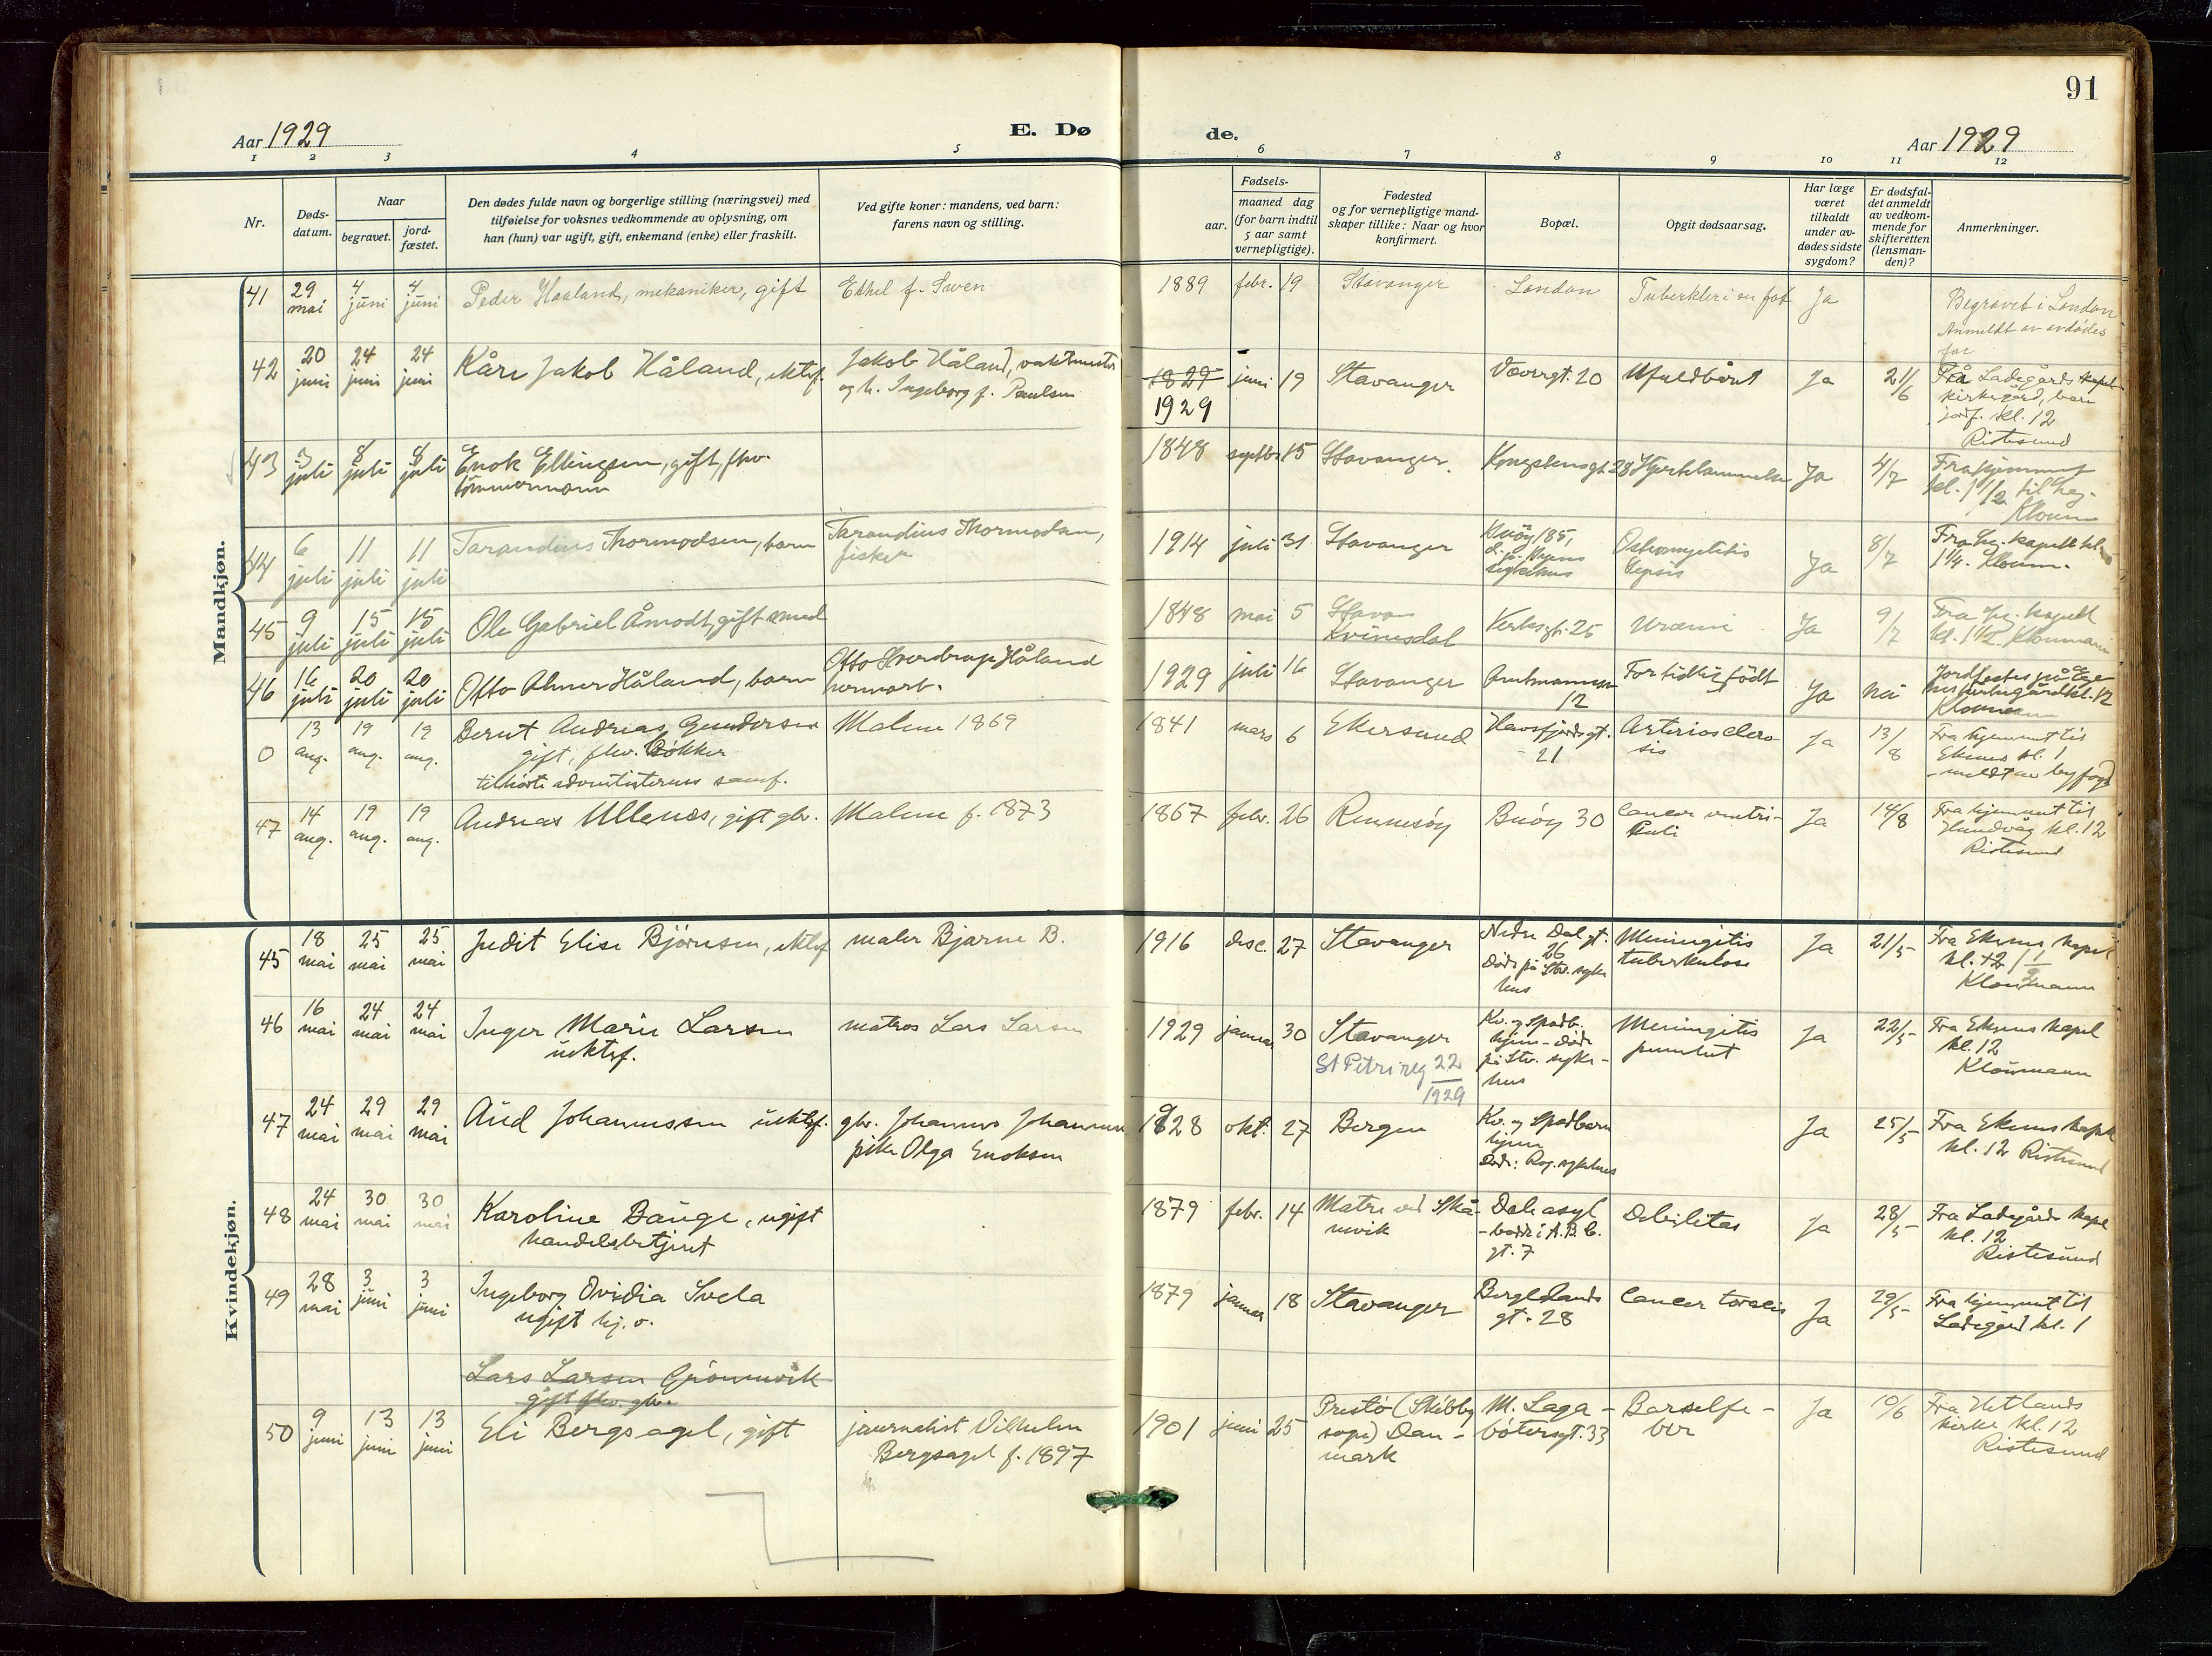 91
Aar 1929
E. Dø
de.
Aar 1929
1 2 3 4 5 6 7 8 9 10 11 12
Nr.
Døds-
datum.
Naar
begravet.
jord-
fæstet.
Den dødes fulde navn og borgerlige stilling (næringsvei) med
tilføielse for voksnes vedkommende av oplysning, om
han (hun) var ugift, gift, enkemand (enke) eller fraskilt.
Ved gifte koner: mandens, ved barn:
farens navn og stilling.
Fødsels-
aar.
maaned dag
(for barn indtil
5 aar samt
vernepligtige).
Fødested
og for vernepligtige mand-
skaper tillike: Naar og hvor
konfirmert.
Bopæl.
Opgit dødsaarsag.
Har læge
været
tilkaldt
under av-
dødes sidste
sygdom?
Er dødsfal-
det anmeldt
av vedkom-
mende for
skifteretten
(lensman-
den)?
Anmerkninger.
Mandkjøn.
41 29 mai 4 juni 4 juni Peder Haaland, mekaniker, gift Ethel f. Swen 1889 febr. 19 Stavanger London Ja
Begravet i London
Anmeldt av avdødes
far
42 20 juni 24 juni 24 juni Kåre Jakob Håland, ektef. Jakob Håland, vaktmester
og h. Ingeborg f. Paulsen
1829 juni 19 Stavanger Vaorgt. 20 Ufuldbårent Ja 21/6
1929
Fra Ladegårds kapel
kirkegård, barn
jordf. kl. 12
Ristesund
43 3 juli 8 juli 8 juli Enok Ellingsen, gift, fhv.
tømmermann
1848 septbr 15 Stavanger. Kongstensgt. 28 Hjertelammelse Ja 4/7
Fra hjemmet
kl. 1 1/2 til
Kloumann
44 6 juli 11 juli 11 juli Tarandius Thormodsen, barn Tarandius Thormodsen,
fisker
1914 juli 31 Stavanger Buøy 185,
sykehus
Osteomyelitis
Sepsis
Ja 8/7
Fra kapell kl.
1 1/4. Kloum.
45 9 juli 15 juli 15 juli Ole Gabriel Åmodt, gift smed
1848 mai 5 Stavan
Kvinesdal
Verksgt. 25 Uræmi Ja 9/7
Fra kapell
kl. 1 1/2. Kloumann
46 16 juli 20 juli 20 juli Otto Abner Håland, barn Otto Sverdrup Håland
hermart.
1929 juli 16 Stavanger
12
For tidlig født Ja nei
Jordfestet på
kl. 12
Kloumann
0 13 aug. 19 aug. 19 aug. Bernt Andreas Gundersen Malene 1869
gift, fhv. bøkker
tilhørte adventisternes samf.
1841 mars 6 Ekersund Havsfjordsgt.
21
Arterioscle-
sis
Ja 13/8
Fra hjemmet til
Ekenes kl. 1
-meldt av byfogd
47 14 aug. 19 aug. 19 aug. Andreas Ullenes, gift gbr. Malene f. 1873
1867 febr. 26 Rennesøy Buøy 30 Cancer ventri-
kuli
Ja 14/8
Fra hjemmet til
Hundvåg kl. 12
Ristesund
Kvindekjøn.
45 18 mai 25 mai 25 mai Judit Elise Bjørnsen, ektef maler Bjarne B.
1916 desc. 27 Stavanger Nedre Dal gt.
26
Døde på Stv. syke
hus
Meningitis
tuberkulose
Ja 21/5
Fra Ekenes kapel
kl. 12 1/2
Kloumann
46 16 mai 24 mai 24 mai Inger Marie Larsen matros Lars Larsen
uektef.
1929 januar 30 Stavanger
St Petri reg 22
1929
Kv. og Spedb.
hjem - døde
på Stv. syke-
hus
Meningitis
purulent
Ja 22/5
Fra Ekenes kapel
kl. 12
Kloumann
47 24 mai 29 mai 29 mai Aud Johannessen uektef. gbr. Johannes Johannessen
pike Olga Enoksen
1928 okt. 27 Bergen Kv. og Spedbarn
hjem
Døde: Rog. sykehus
Ja 25/5
Fra Ekenes kapel
kl. 12 Ristesund
48 24 mai 30 mai 30 mai Karoline Bauge, ugift
handelsbetjent
1879 febr. 14 Matre ved Skå-
nevik
Dale asyl
-bodde i A.B.C.
gt. 7
Debilitas Ja 28/5
Fra Ladegårds kapel
kl. 12
Ristesund
49 28 mai 3 juni 3 juni Ingeborg Ovidia Svela
ugift hj. v.
1879 januar 18 Stavanger Bergelands
gt. 28
Cancer Ja 29/5
Fra hjemmet til
Ladegård kl. 1
Lars Larsen Grønnevik
gift fhv. gbr.
50 9 juni 13 juni 13 juni Eli Bergsagel, gift journalist Vilhelm
Bergsagel f. 1897
1901 juni 25 Prestø (Skibby
sogn) Dan-
mark
M. Laga-
bøtersgt. 33
Barselfe-
ber
Ja 10/6
Fra Hetlands
kirke kl. 12
Ristesund